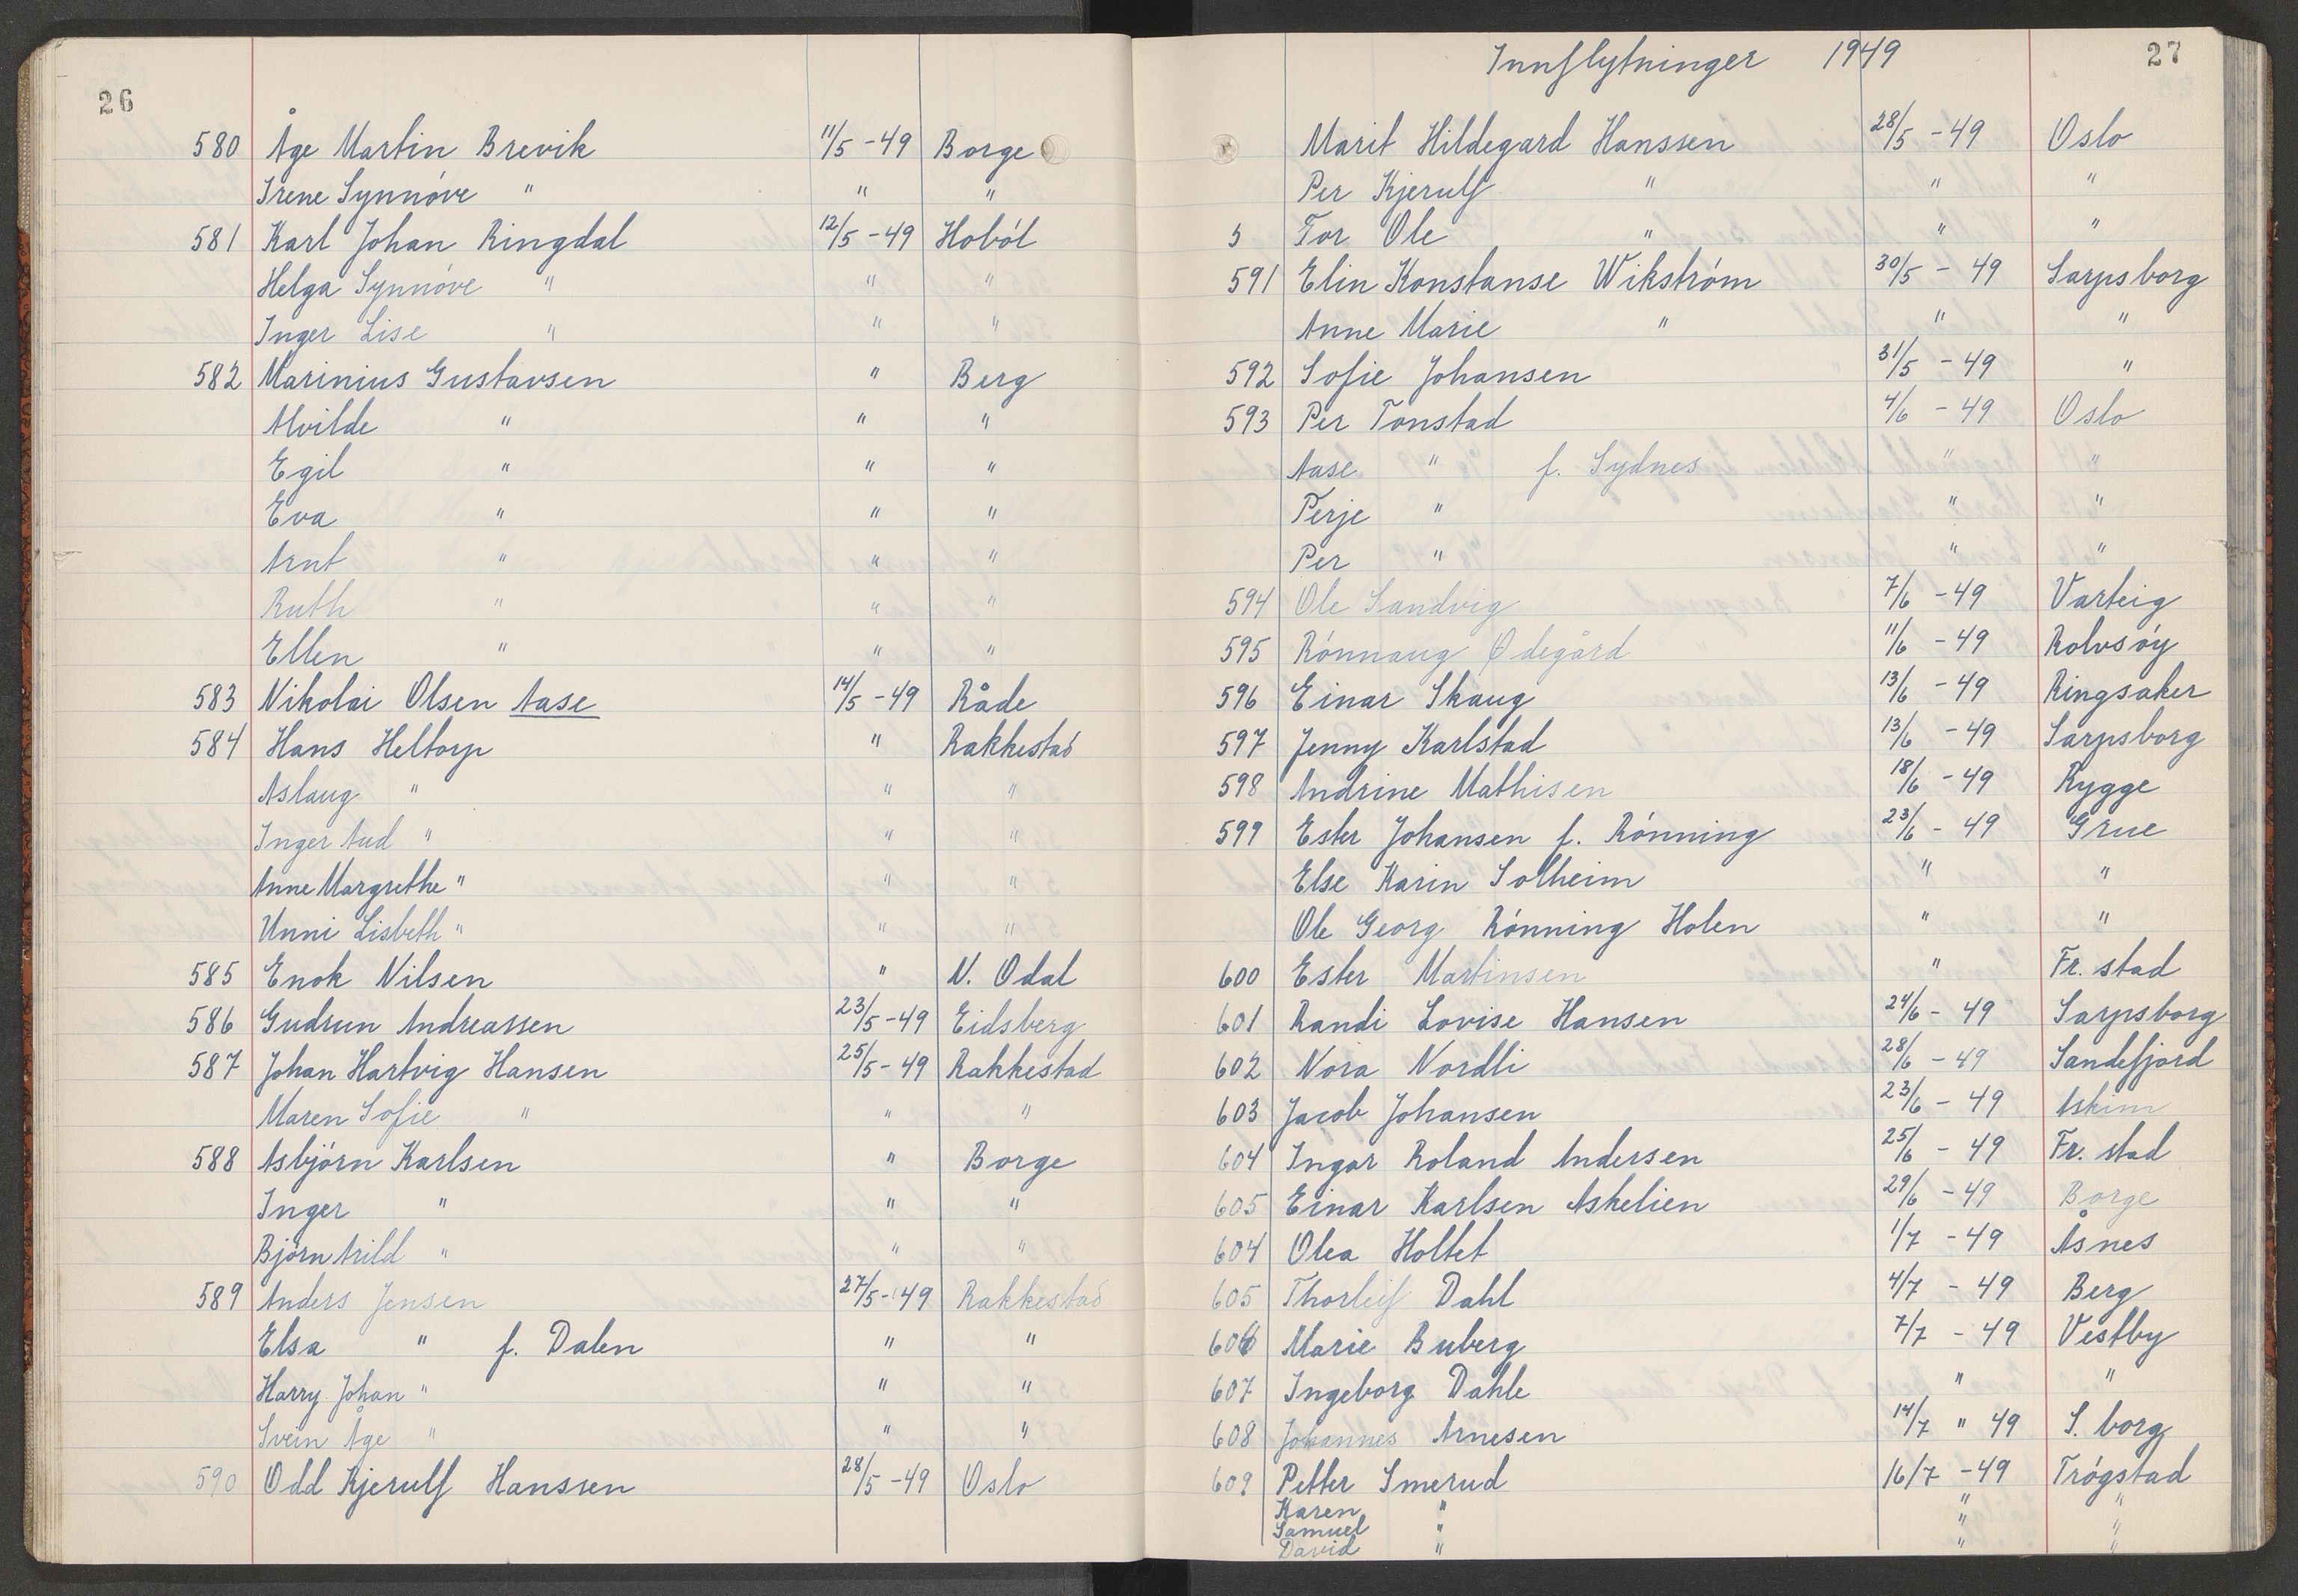 26
580 Åge Martin Brevik 11/5 -49 Borge
Irene Synnöve " " "
581 Karl Johan Ringdal 12/5 -49 Hoböl
Helga Synnöve " " "
Inger Lise " " "
582 Marinius Gustavsen " Berg
Alvilde " " "
Egil " " "
Eva " " "
Arnt " " "
Ruth " " "
Ellen " " "
583 Nikolai Olsen Aase 14/5 -49 Råde
584 Hans Heltorp " Rakkestad
Aslaug " " "
Inger Aud " " "
Anne Margrethe " " "
Unni Lisbeth " " "
585 Enok Nilsen " N. Odal
586 Gudrun Andreassen 23/5 -49 Eidsberg
587 Johan Hartvig Hansen 25/5 -49 Rakkestad
Maren Sofie " " "
588 Asbjörn Karlsen " Borge
Inger " " "
Björn Arild " " "
589 Anders Jensen 27/5 -49 Rakkestad
Elsa " f. Dalen " "
Harry Johan " " "
Svein Åge " " "
590 Odd Kjerulf Hanssen 28/5 -49 Oslo
Innflytninger 1949 27
Marit Hildegard Hanssen 28/5 -49 Oslo
Per Kjerulf " " "
5 Tor Ole " " "
591 Elin Konstanse Wikström 30/5 - 49 Sarpsborg
Anne Marie " " "
592 Sofie Johansen 31/5 -49 "
593 Per Tonstad 4/6 -49 Oslo
Aase " f. Sydnes " "
Terje " " "
Per " " "
594 Ole Sandvig 7/6 -49 Varteig
595 Rönnaug Ödegård 11/6 -49 Rolvsöy
596 Einar Skaug 13/6 -49 Ringsaker
597 Jenny Karlstad 13/6 -49 Sarpsborg
598 Andrine Mathisen 18/6 -49 Rygge
599 Ester Johansen f. Rönning 23/6 - 49 Grue
Else Karin Solheim " "
Ole Georg Rönning Holen " "
600 Ester Martinsen " Fr. stad
601 Randi Lovise Hansen 24/6 - 49 Sarpsborg
602 Nora Nordli 28/6 -49 Sandefjord
603 Jacob Johansen 23/6 - 49 Askim
604 Ingar Roland Andersen 25/6 - 49 Fr. stad
605 Einar Karlsen Askelien 29/6 -49 Borge
604 Olea Holtet 1/7 -49 Åsnes
605 Thorleif Dahl 4/7 - 49 Berg
606 Marie Buberg 7/7 - 49 Vestby
607 Ingeborg Dahle " "
608 Johannes Arnesen 14/7 " 49 S. borg
609 Petter Smerud 16/7 -49 Trögstad
Karen " " "
Samuel " " "
David " " "